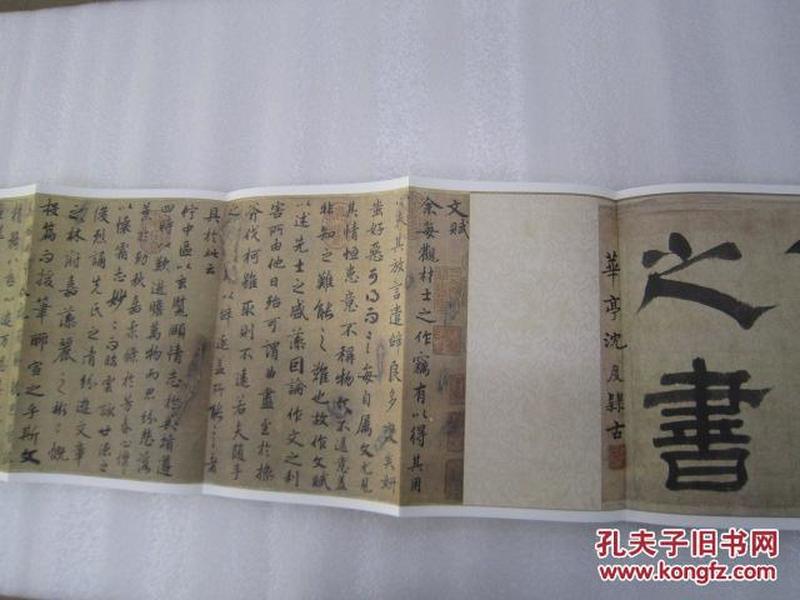 之書
華亭沈度隸古
文賦
余每觀材士之作竊有以得其用
其放言遣辭良多變矣妍
蚩好惡可得而言每自屬文尤見
其情恒患意不稱物文不逮意蓋
非知之難能之難也故作文賦
以述先士之盛藻因論作文之利
害所由他日殆可謂曲盡至於操
斧伐柯雖取則不遠若夫隨手
之 以辭逮蓋所能言者
具於此云
佇中區以玄覽頤情志於典墳遵
四時以歎逝瞻萬物而思紛悲落
葉於勁秋喜柔條於芳春心懍
以懷霜志眇眇而臨雲詠世德之
俊烈誦先民之清芬遊文章
之林府嘉藻麗之彬彬慨
投篇而援筆聊宣之乎斯文
孔夫子旧书网
www.kongfz.com